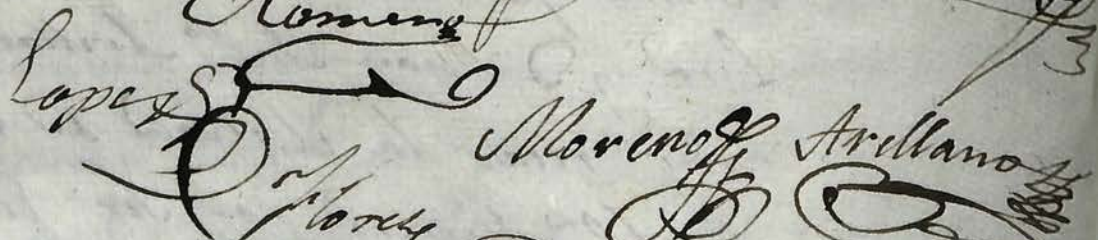 Romero
Lopez
Moreno Arellano
Flores